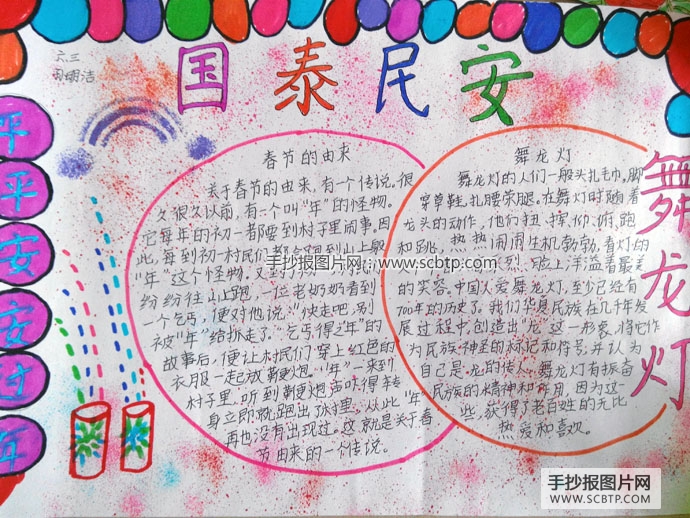 六三
国泰民安
平平安安过年
春节的由来
关于春节的由来，有一个传说。很
久很久以前，有一个叫"年"的怪物。
它每年的初一都要到村子里闹事。因
此，每到初一村民们都会跑到山上躲
"年"这个怪物。又到
纷纷往山上跑，一位老奶奶看到
一个乞丐，便对他说："快走吧，别
被"年"给抓走了。"乞丐得之"年"的
故事后，便让村民们穿上红色的
衣服一起放鞭炮，"年"一来到
村子里，听到鞭炮声吓得转
身立即就跑出了村里。从此"年"
再也没有出现过。这就是关于春
节由来的一个传说。
舞龙灯
舞龙灯的人们一般头扎毛巾，脚
穿草鞋，扎腰荣腿。在舞灯时随着
龙头的动作，他们扭、挥、仰、俯、跑
和跳，热热闹闹生机勃勃，看灯的
烈，脸上洋溢着最美
的笑容。中国人爱舞龙灯，至少已经有
700年的历史了。我们华夏民族在几千年发
展过程中，创造出"龙"这一形象，将它作
为民族神圣的标记和符号，并认为
自己是"龙的传人"。舞龙灯有振奋
民族的精神和作用，因为这一
些，获得了老百姓的无比
热爱和喜欢。
舞龙灯
手抄报图片网：www.scbtp.com
手抄报图片网
WWW.SCBTP.COM